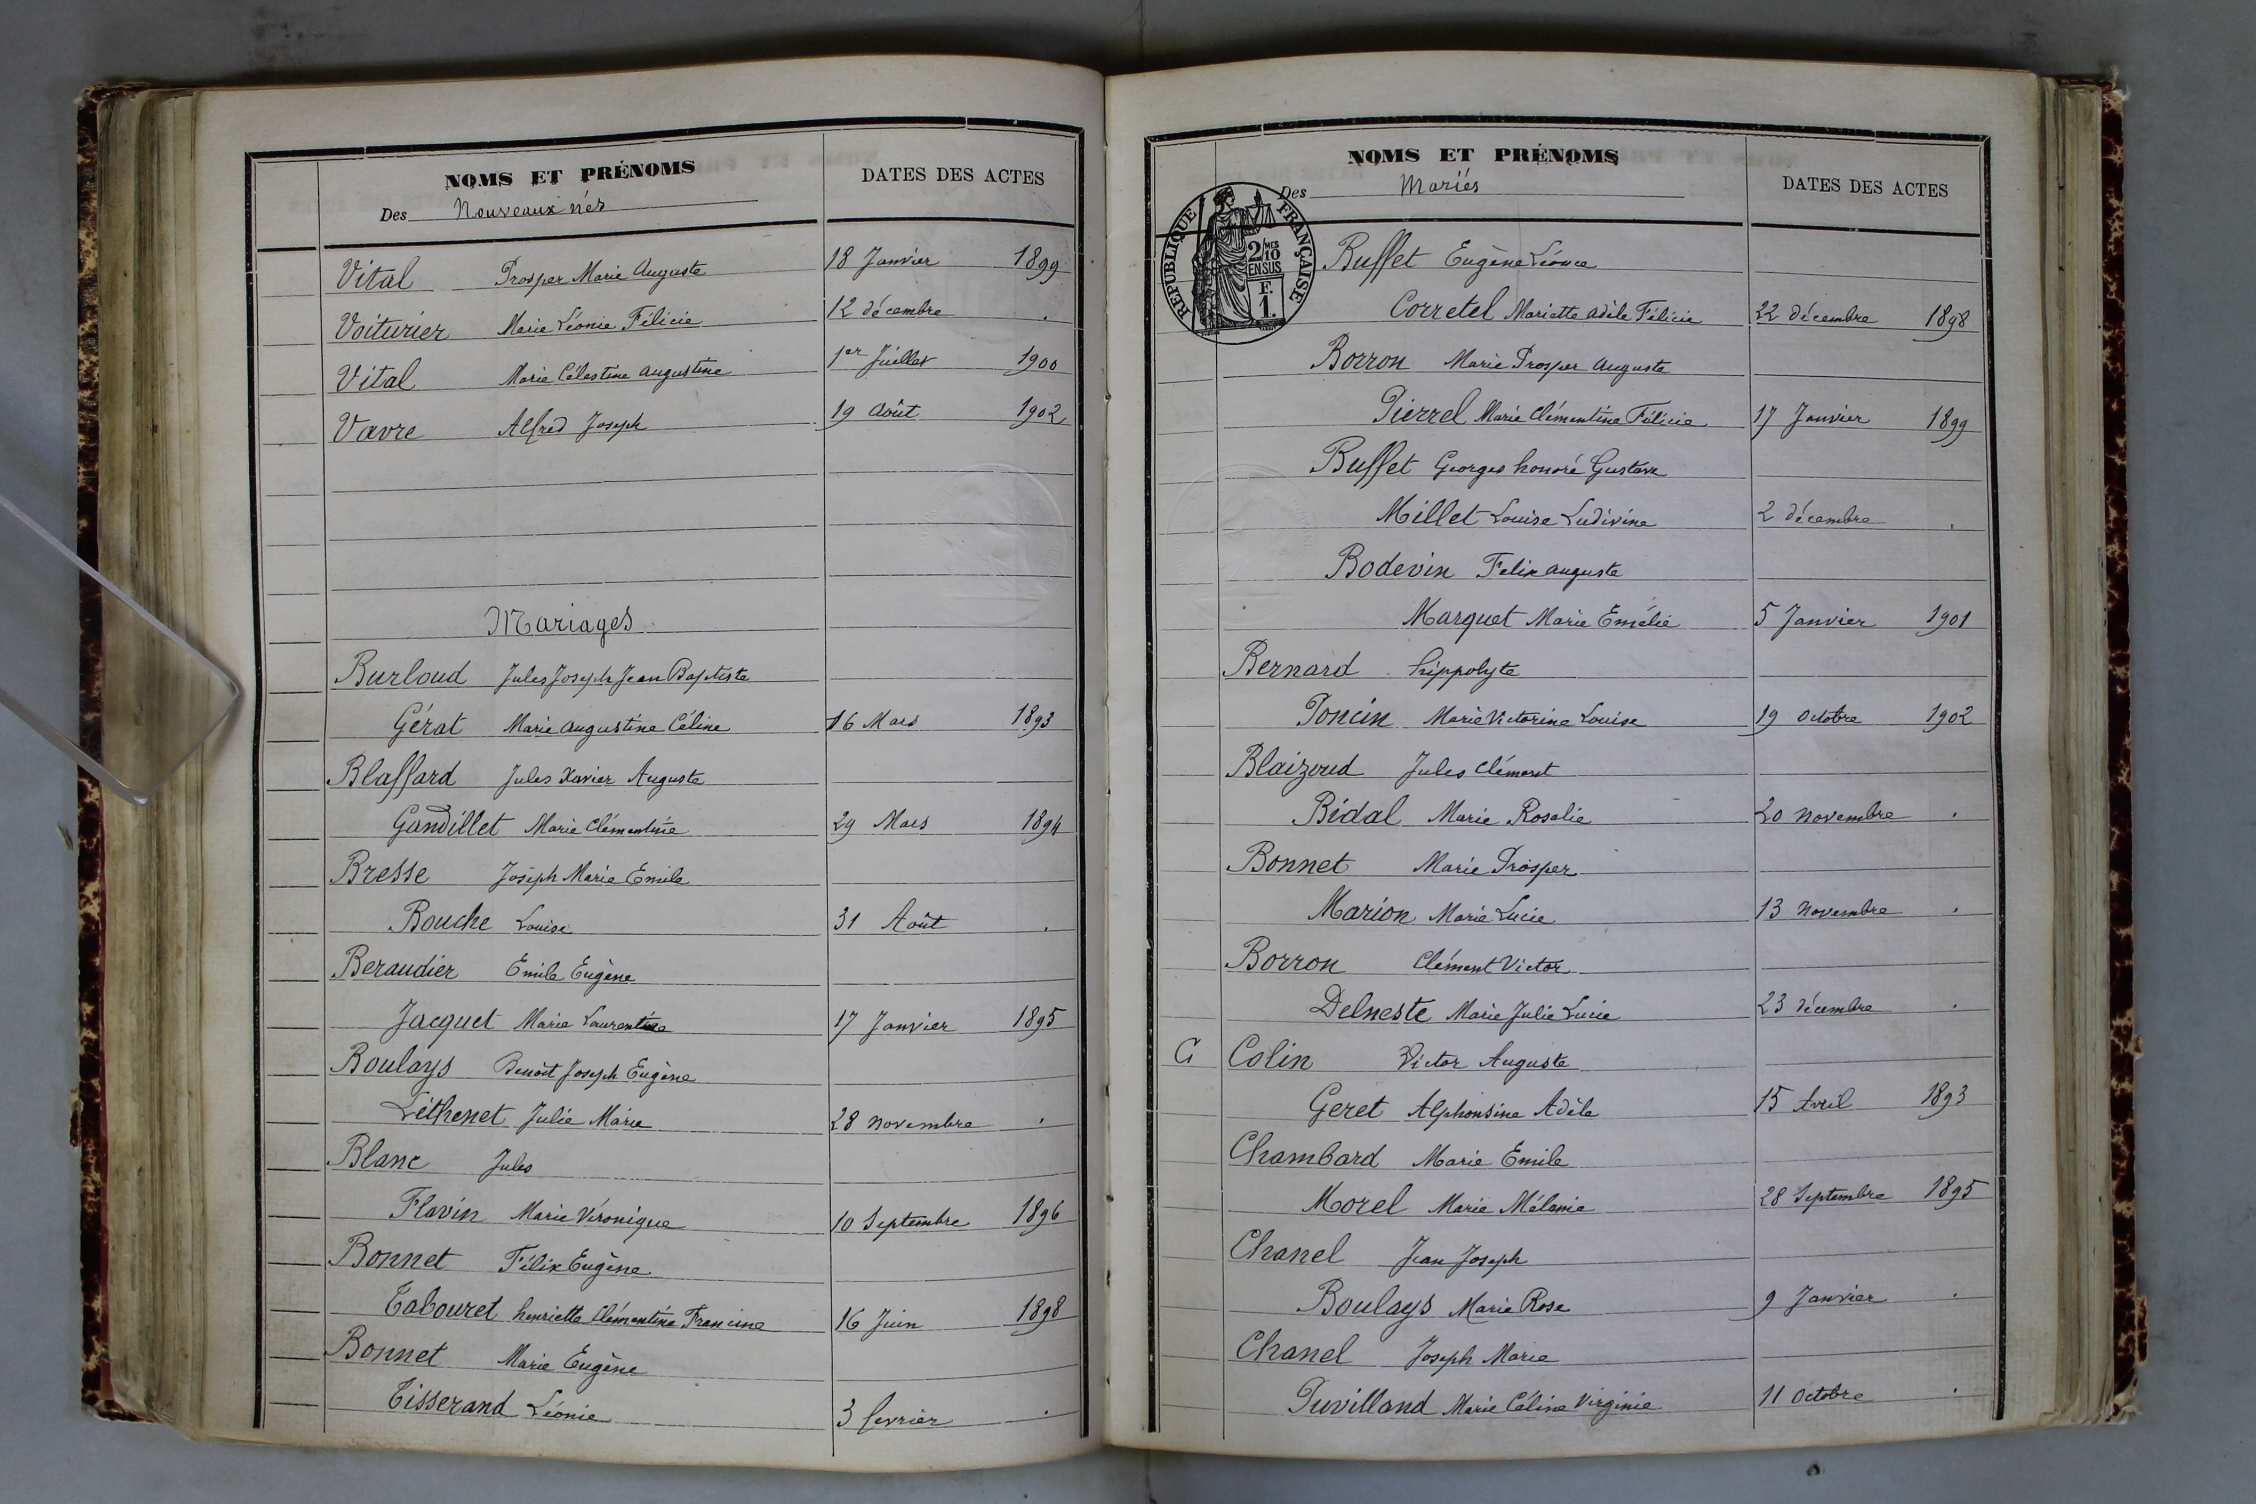 NOMS ET PRÉNOMS
DATES DES ACTES
Des Nouveaux nés
Vital Prosper Marie Auguste 18 Janvier 1899
Voiturier Marie Léonie Félicie 12 décembre .
Vital Marie Célestine Augustine 1er Juillet 1900
Vavre Alfred Joseph 19 Août 1902
Mariages
Burloud Jules Joseph Jean Baptiste
Gérat Marie Augustine Céline 16 Mars 1893
Blaffard Jules Xavier Auguste
Gandillet Marie Clémentine 29 Mars 1894
Bresse Joseph Marie Emile
Bouche Louise 31 Août .
Beraudier Emile Eugène
Jacquet Marie Laurentine 17 Janvier 1895
Boulays Benoît Joseph Eugène
Léthenet Julie Marie 28 novembre .
Blanc Jules
Flavin Marie Véronique 10 Septembre 1896
Bonnet Félix Eugène
Tabouret henriette Clémentine Francine 16 Juin 1898
Bonnet Marie Eugène
Tisserand Léonie 3 fevrier .
NOMS ET PRÉNOMS
DATES DES ACTES
Des Mariés
RÉPUBLIQUE FRANÇAISE
2/10 MES
EN SUS
F.
1.
Buffet Eugène Léonce
Corretel Mariette Adèle Félicie 22 décembre 1898
Borron Marie Prosper Auguste
Pierrel Marie Clémentine Félicie 17 Janvier 1899
Buffet Georges honoré Gustave
Millet Louise Ludivine 2 décembre .
Bodevin Felix Auguste
Marquet Marie Emélie 5 Janvier 1901
Bernard hippolyte
Poncin Marie Victorine Louise 19 Octobre 1902
Blaizoud Jules Clément
Bidal Marie Rosalie 20 novembre .
Bonnet Marie Prosper
Marion Marie Lucie 13 novembre .
Borron Clément Victor
Delneste Marie Julie Lucie 23 décembre .
C Colin Victor Auguste
Geret Alphonsine Adèle 15 Avril 1893
Chambard Marie Emile
Morel Marie Mélanie 28 Septembre 1895
Chanel Jean Joseph
Boulays Marie Rose 9 Janvier .
Chanel Joseph Marie
Puvilland Marie Céline Virginie 11 Octobre .